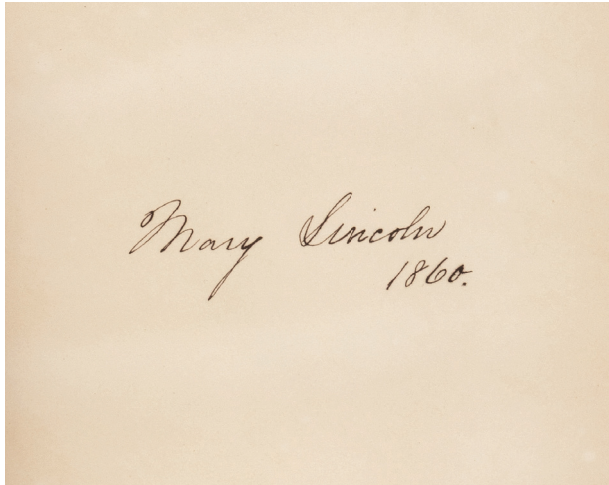 Mary Lincoln
1860.